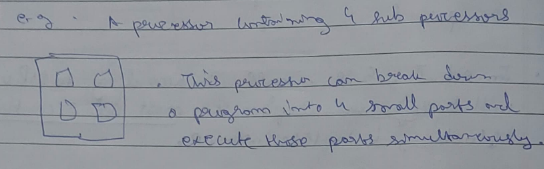 e.g. A processor containing 4 sub processors
. This processor can break down
a program into 4 small parts and
execute those parts simultaneously.